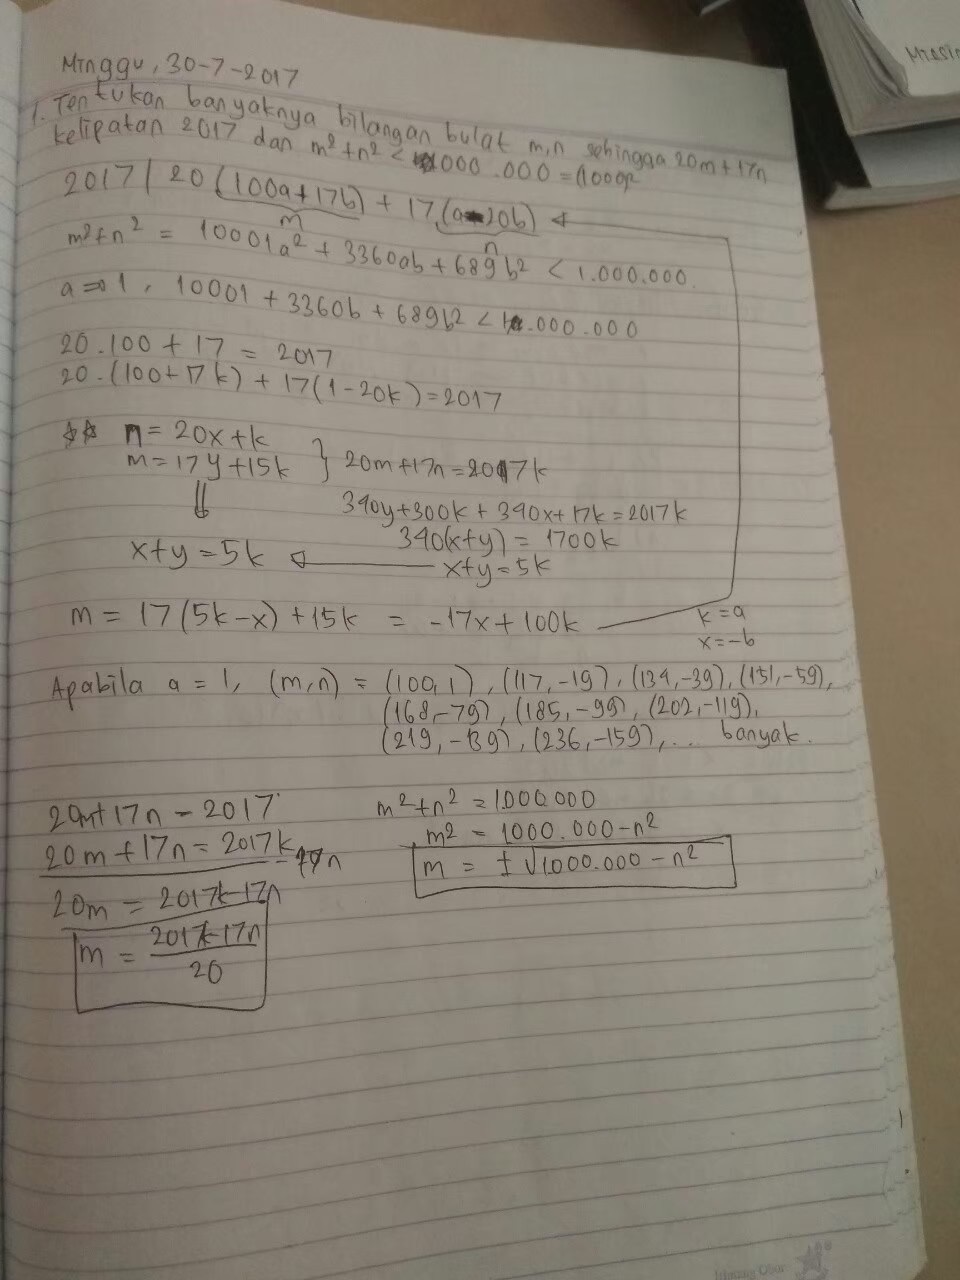 Minggu, 30-7-2017
1. Tentukan banyaknya bilangan bulat m,n sehingga 20m + 17n
kelipatan 2017 dan m² + n² < 1.000.000 = (1000)²
2017 | 20 (100a + 17b) + 17 (a - 20b)
m n
m² + n² = 10001a² + 3360ab + 689b² < 1.000.000.
a = 1, 10001 + 3360b + 689b² < 1.000.000
20.100 + 17 = 2017
20.(100 + 17k) + 17(1 - 20k) = 2017
** n = 20x + k
m = 17y + 15k } 20m + 17n = 2017k
⇓ 340y + 300k + 340x + 17k = 2017k
340(x + y) = 1700k
x + y = 5k ← x + y = 5k
m = 17(5k - x) + 15k = -17x + 100k
k = a
x = -b
Apabila a = 1, (m,n) = (100,1), (117,-19), (134,-39), (151,-59),
(168,-79), (185,-99), (202,-119),
(219,-139), (236,-159), ... banyak.
20m + 17n - 2017 m² + n² = 1.000.000
20m + 17n = 2017k - 17n m² = 1000.000 - n²
20m = 2017k - 17n m = ± √1.000.000 - n²
m = 2017k - 17n
20